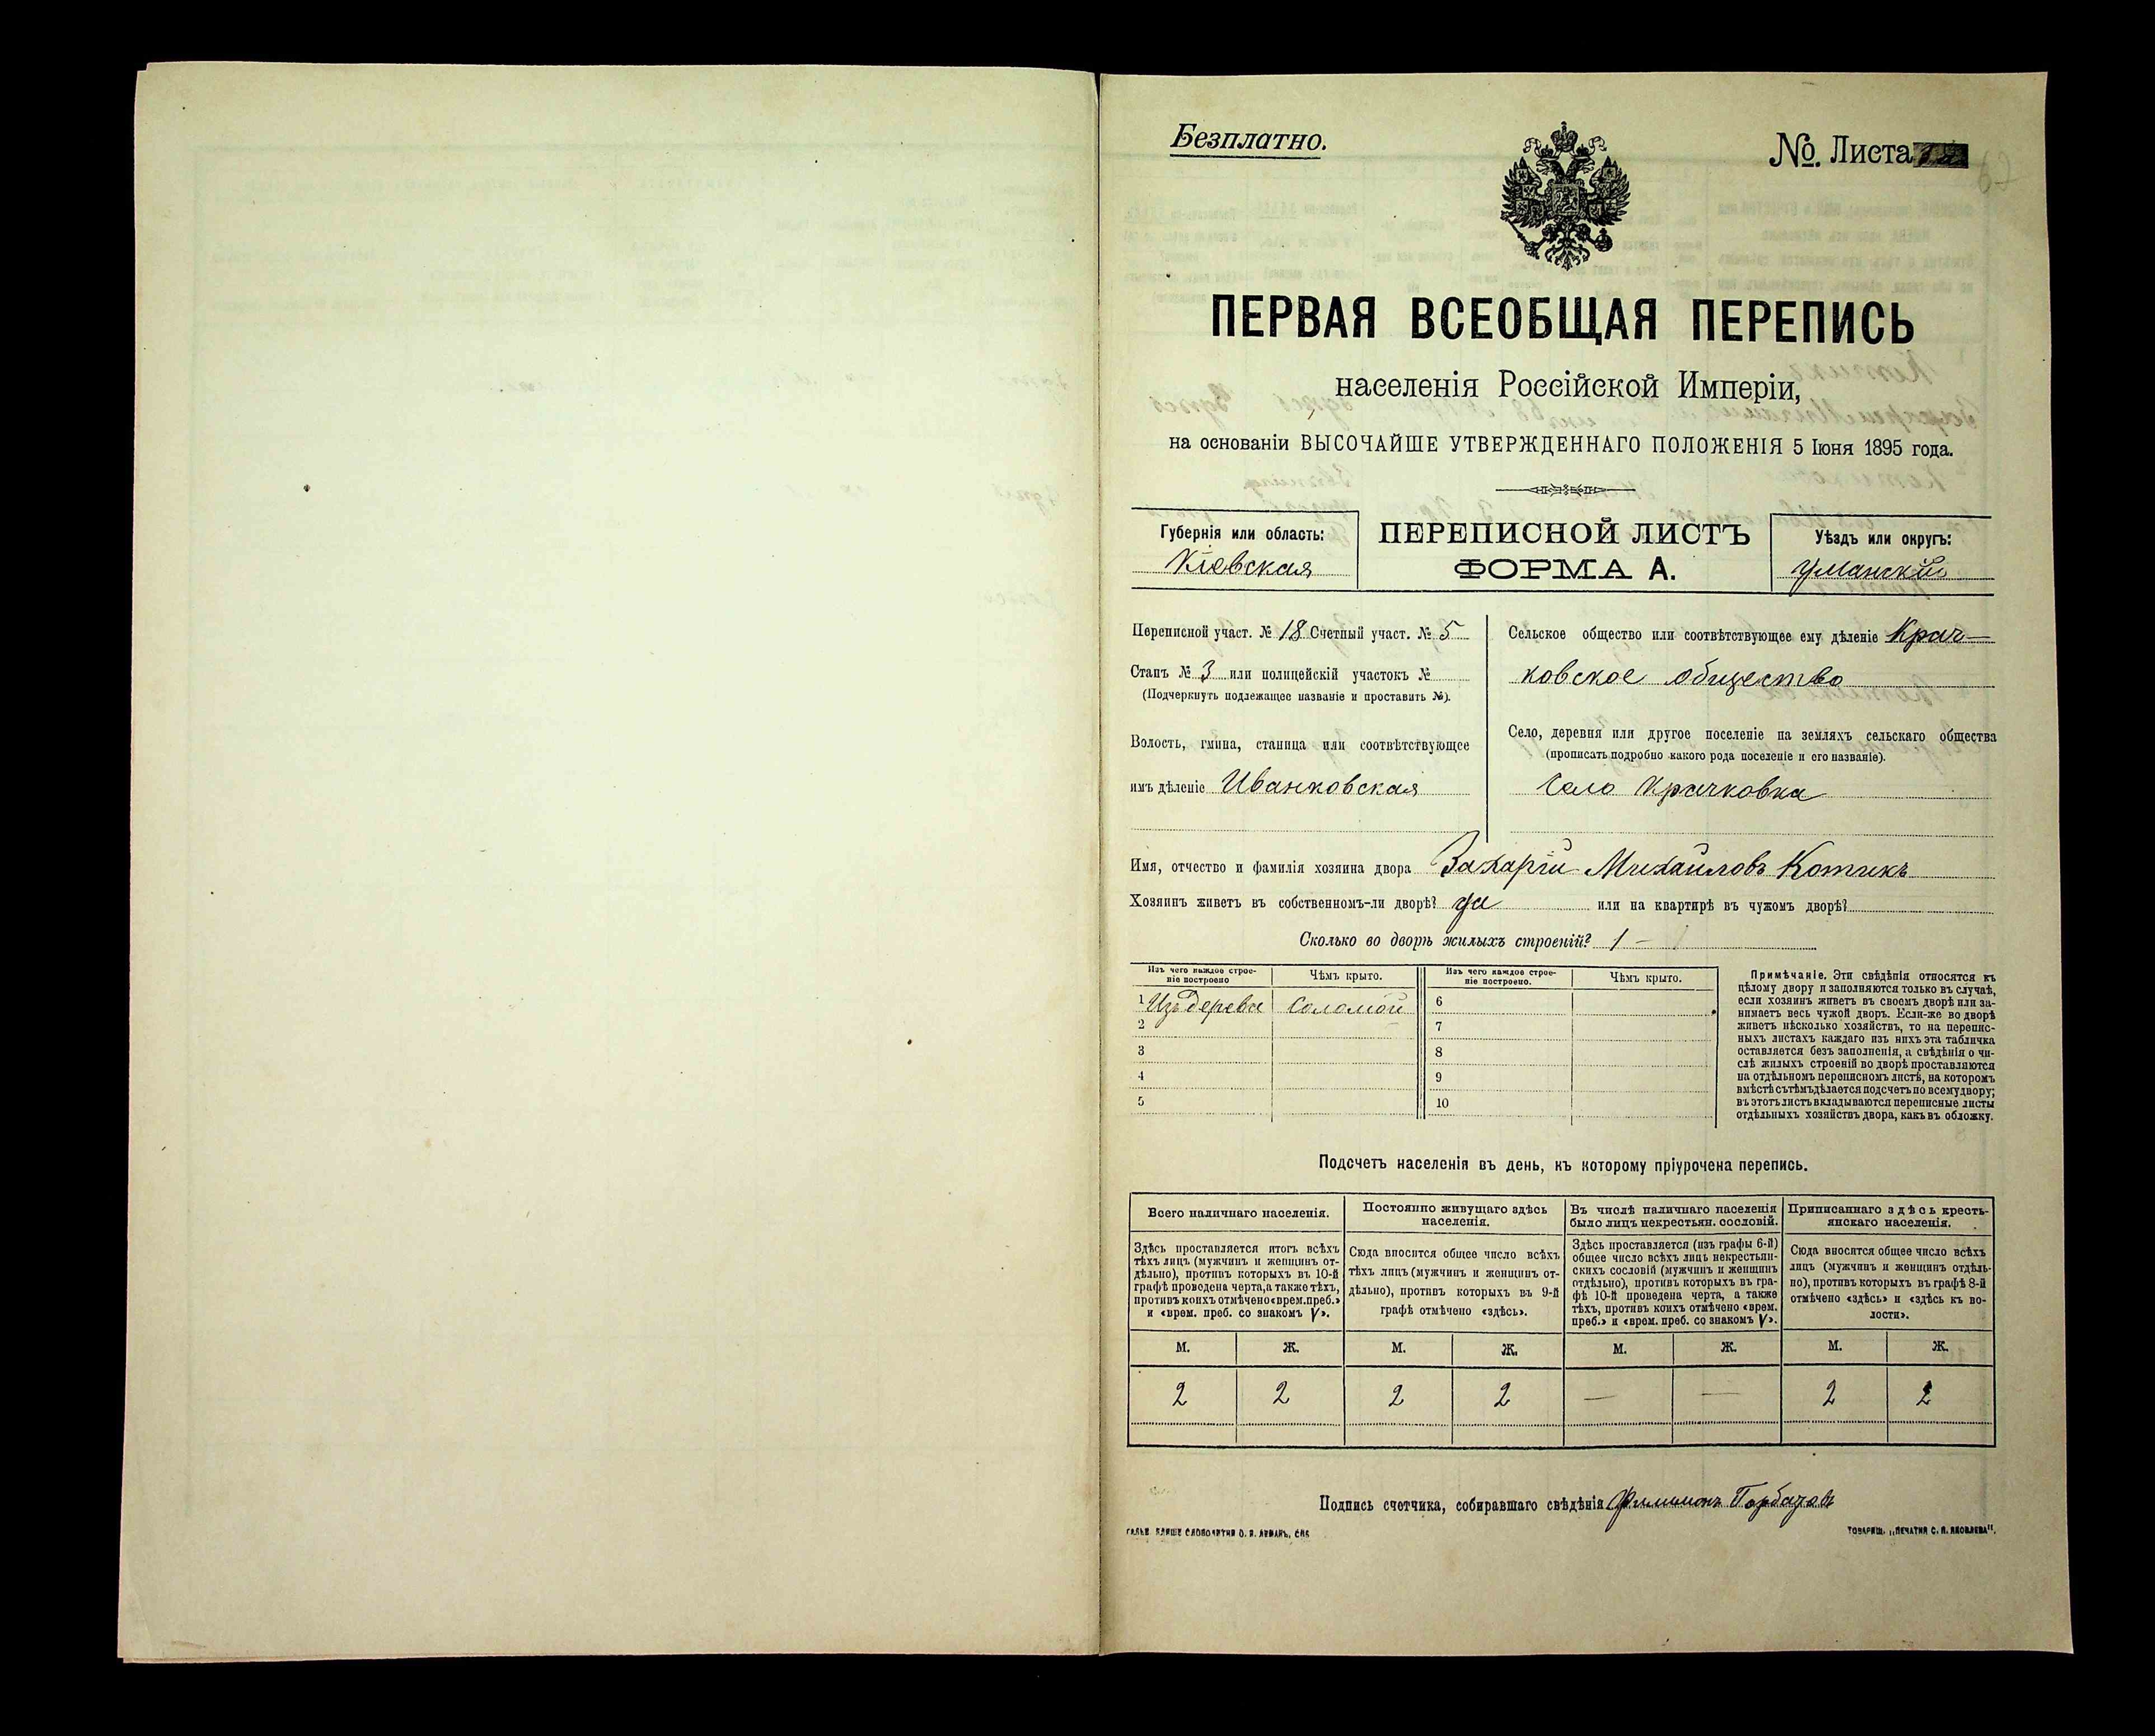 Безплатно.
№ Листа
ПЕРВАЯ ВСЕОБЩАЯ ПЕРЕПИСЬ
населенія Россійской Имперіи,
на основаніи ВЫСОЧАЙШЕ УТВЕРЖДЕННАГО ПОЛОЖЕНІЯ 5 Іюня 1895 года.
Губернія или область:
Кіевская
ПЕРЕПИСНОЙ ЛИСТЪ
ФОРМА А.
Уѣздъ или округъ:
Уманскій
Переписной участ. № 18 Счетный участ. № 5
Станъ № 3 или полицейскій участокъ №
(Подчеркнуть подлежащее названіе и проставить №).
Волость, гмина, станица или соотвѣтствующее
имъ дѣленіе Иванковская
Сельское общество или соотвѣтствующее ему дѣленіе Крач-
ковское общество
Село, деревня или другое поселеніе на земляхъ сельскаго общества
(прописать подробно какого рода поселеніе и его названіе).
Село Крачковка
Имя, отчество и фамилія хозяина двора Захарій Михайловъ Котикъ
Хозяинъ живетъ въ собственномъ-ли дворѣ? да или на квартирѣ въ чужомъ дворѣ?
Сколько во дворѣ жилыхъ строеній? 1 -
Изъ чего каждое строе-
ніе построено
Чѣмъ крыто.
Изъ чего каждое строе-
ніе построено.
Чѣмъ крыто.
1 Изъ дерева Соломой
2
3
4
5
6
7
8
9
10
Примѣчаніе. Эти свѣдѣнія относятся къ
цѣлому двору и заполняются только въ случаѣ,
если хозяинъ живетъ въ своемъ дворѣ или за-
нимаетъ весь чужой дворъ. Если-же во дворѣ
живетъ нѣсколько хозяйствъ, то на перепис-
ныхъ листахъ каждаго изъ нихъ эта табличка
оставляется безъ заполненія, а свѣдѣнія о чи-
слѣ жилыхъ строеній во дворѣ проставляются
на отдѣльномъ переписномъ листѣ, на которомъ
вмѣстѣ съ тѣмъ дѣлается подсчетъ по всему двору;
въ этотъ листъ вкладываются переписные листы
отдѣльныхъ хозяйствъ двора, какъ въ обложку.
Подсчетъ населенія въ день, къ которому пріурочена перепись.
Всего наличнаго населенія.
Постоянно живущаго здѣсь
населенія.
Въ числѣ наличнаго населенія
было лицъ некрестьян. сословій.
Приписаннаго здѣсь кресть-
янскаго населенія.
Здѣсь проставляется итогъ всѣхъ
тѣхъ лицъ (мужчинъ и женщинъ от-
дѣльно), противъ которыхъ въ 10-й
графѣ проведена черта, а также тѣхъ,
противъ коихъ отмѣчено «врем. преб.»
и «врем. преб. со знакомъ V».
Сюда вносится общее число всѣхъ
тѣхъ лицъ (мужчинъ и женщинъ от-
дѣльно), противъ которыхъ въ 9-й
графѣ отмѣчено «здѣсь».
Здѣсь проставляется (изъ графы 6-й)
общее число всѣхъ лицъ некрестьян-
скихъ сословій (мужчинъ и женщинъ
отдѣльно), противъ которыхъ въ гра-
фѣ 10-й проведена черта, а также
тѣхъ, противъ коихъ отмѣчено «врем.
преб.» и «врем. преб. со знакомъ V».
Сюда вносится общее число всѣхъ
лицъ (мужчинъ и женщинъ отдѣль-
но), противъ которыхъ въ графѣ 8-й
отмѣчено «здѣсь» и «здѣсь къ во-
лости».
М. Ж. М. Ж. М. Ж. М. Ж.
2 2 2 2 — — 2 2
Подпись счетчика, собиравшаго свѣдѣнія Филимонъ Горбачовъ
ТОВАРИЩ. „ПЕЧАТНЯ С. П. ЯКОВЛЕВА".